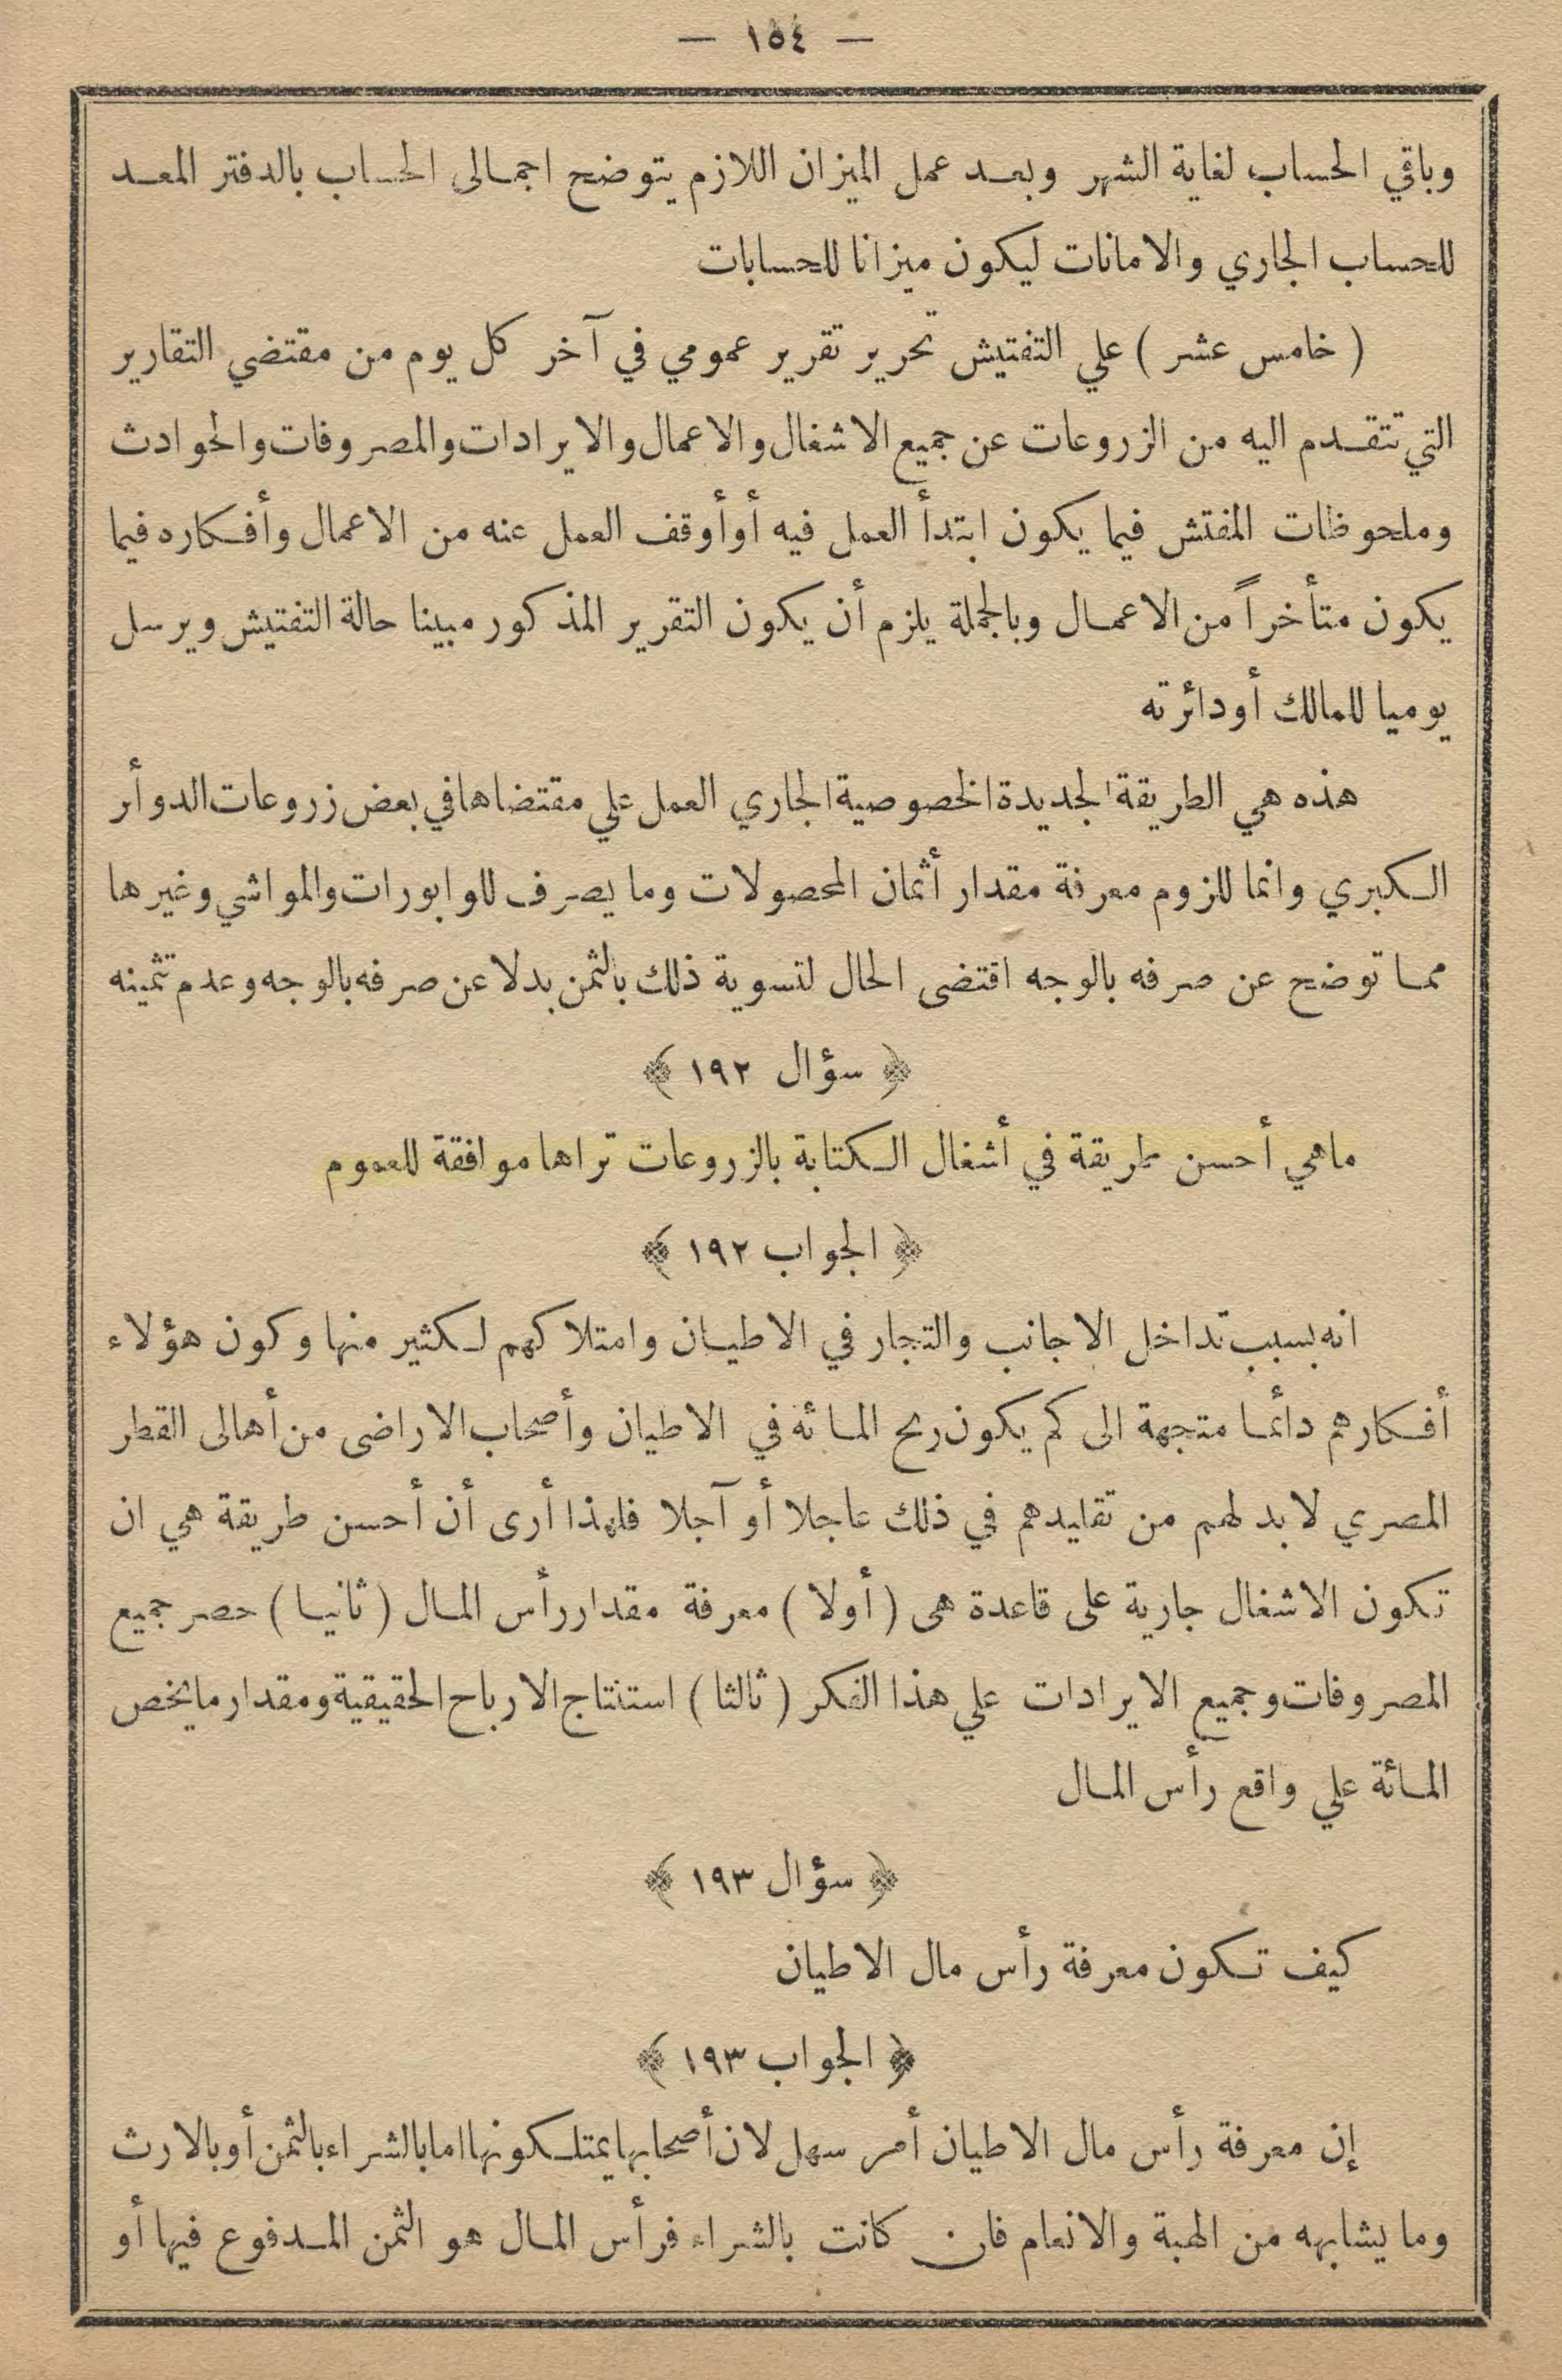 — ١٥٤ —
وباقي الحساب لغاية الشهر وبعد عمل الميزان اللازم يتوضح اجمالى الحساب بالدفتر المعد
للحساب الجاري والامانات ليكون ميزانا للحسابات
( خامس عشر ) علي التفتيش تحرير تقرير عمومي في آخر كل يوم من مقتضي التقارير
التي تتقدم اليه من الزروعات عن جميع الاشغال والاعمال والايرادات والمصروفات والحوادث
وملحوظات المفتش فيما يكون ابتدأ العمل فيه أو أوقف العمل عنه من الاعمال وأفكاره فيما
يكون متأخراً من الاعمال وبالجملة يلزم أن يكون التقرير المذكور مبينا حالة التفتيش ويرسل
يوميا للمالك أودائرته
هذه هي الطريقة الجديدة الخصوصية الجاري العمل علي مقتضاها في بعض زروعات الدوأر
الكبري وانما للزوم معرفة مقدار أثمان المحصولات وما يصرف للوابورات والمواشي وغيرها
مما توضح عن صرفه بالوجه اقتضى الحال لتسوية ذلك بالثمن بدلا عن صرفه بالوجه وعدم تثمينه
﴿ سؤال ١٩٢ ﴾
ماهي أحسن طريقة في أشغال الكتابة بالزروعات تراها موافقة للعموم
﴿ الجواب ١٩٢ ﴾
انه بسبب تداخل الاجانب والتجار في الاطيان وامتلاكهم لكثير منها وكون هؤلاء
أفكارهم دائما متجهة الى كم يكون ربح المائة في الاطيان وأصحاب الاراضى من أهالى القطر
المصري لابد لهم من تقليدهم في ذلك عاجلا أو آجلا فلهذا أرى أن أحسن طريقة هي ان
تكون الاشغال جارية على قاعدة هى ( أولا ) معرفة مقدار رأس المال ( ثانيا ) حصر جميع
المصروفات وجميع الايرادات علي هذا الفكر ( ثالثا ) استنتاج الارباح الحقيقية ومقدار مايخص
المائة علي واقع رأس المال
﴿ سؤال ١٩٣ ﴾
كيف تكون معرفة رأس مال الاطيان
﴿ الجواب ١٩٣ ﴾
إن معرفة رأس مال الاطيان أمر سهل لان أصحابها يمتلكونها اما بالشراء بالثمن أو بالارث
وما يشابهه من الهبة والانعام فان كانت بالشراء فرأس المال هو الثمن المدفوع فيها أو